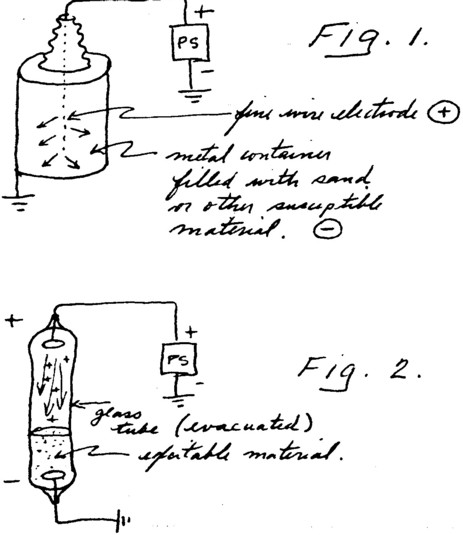 +
PS
-
Fig. 1.
fine wire electrode (+)
metal container
filled with sand
or other susceptible
material. (-)
+
+
PS
-
Fig. 2.
+
+
+
+
+
glass
tube (evacuated)
excitable material.
-